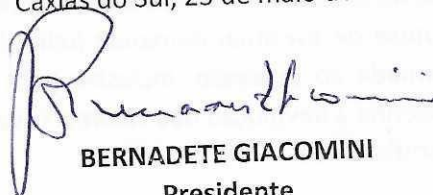 Caxias do Sul, 25 de maio
BERNADETE GIACOMINI
Presidente